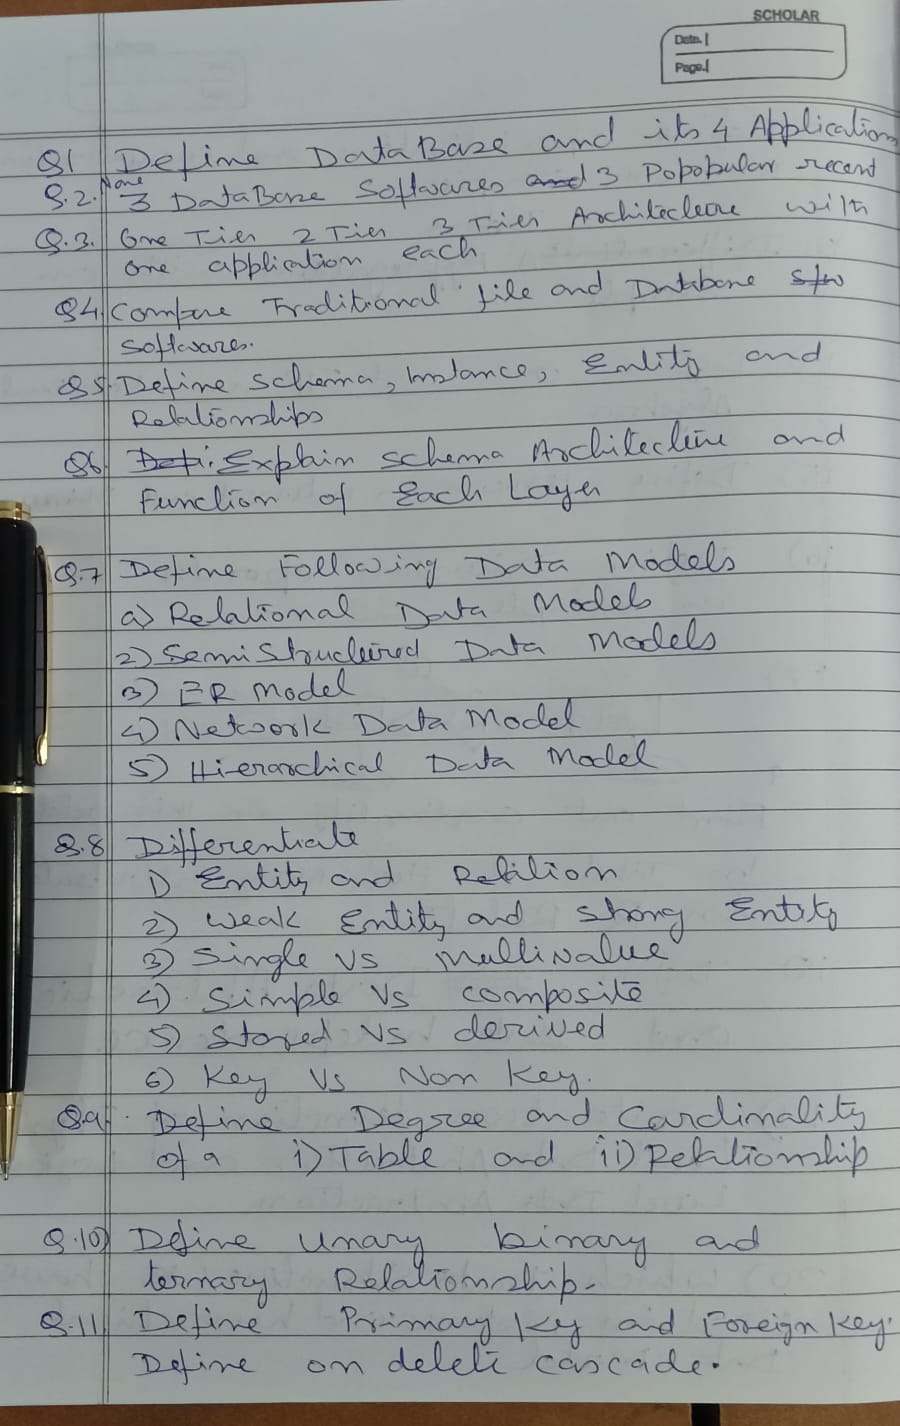 SCHOLAR
Date.
Page.
Q1 Define DataBase and its 4 Application
Q.2. Name 3 DataBase Softwares and 3 Popobular recent
Q.3. One Tier 2 Tier 3 Tier Architecture with
one application each
Q4. Compare Traditional file and Database S/w
Softwares.
Q5. Define Schema, Instance, Entity and
Relationships
Q6. Def: Explain Schema Architecture and
Function of Each Layer
Q.7 Define Following Data Models
a) Relational Data Models
2) SemiStructured Data Models
3) ER Model
4) Network Data Model
5) Hierarchical Data Model
Q.8 Differentiate
1) Entity and Relation
2) Weak Entity and Strong Entity
3) Single vs Multivalue
4) Simple Vs composite
5) Stored Vs derived
6) Key Vs Non Key.
Q.9. Define Degree and Cardinality
of a i) Table and ii) Relationship
Q.10) Define Unary binary and
ternary Relationship.
Q.11 Define Primary Key and Foreign Key.
Define on delete cascade.